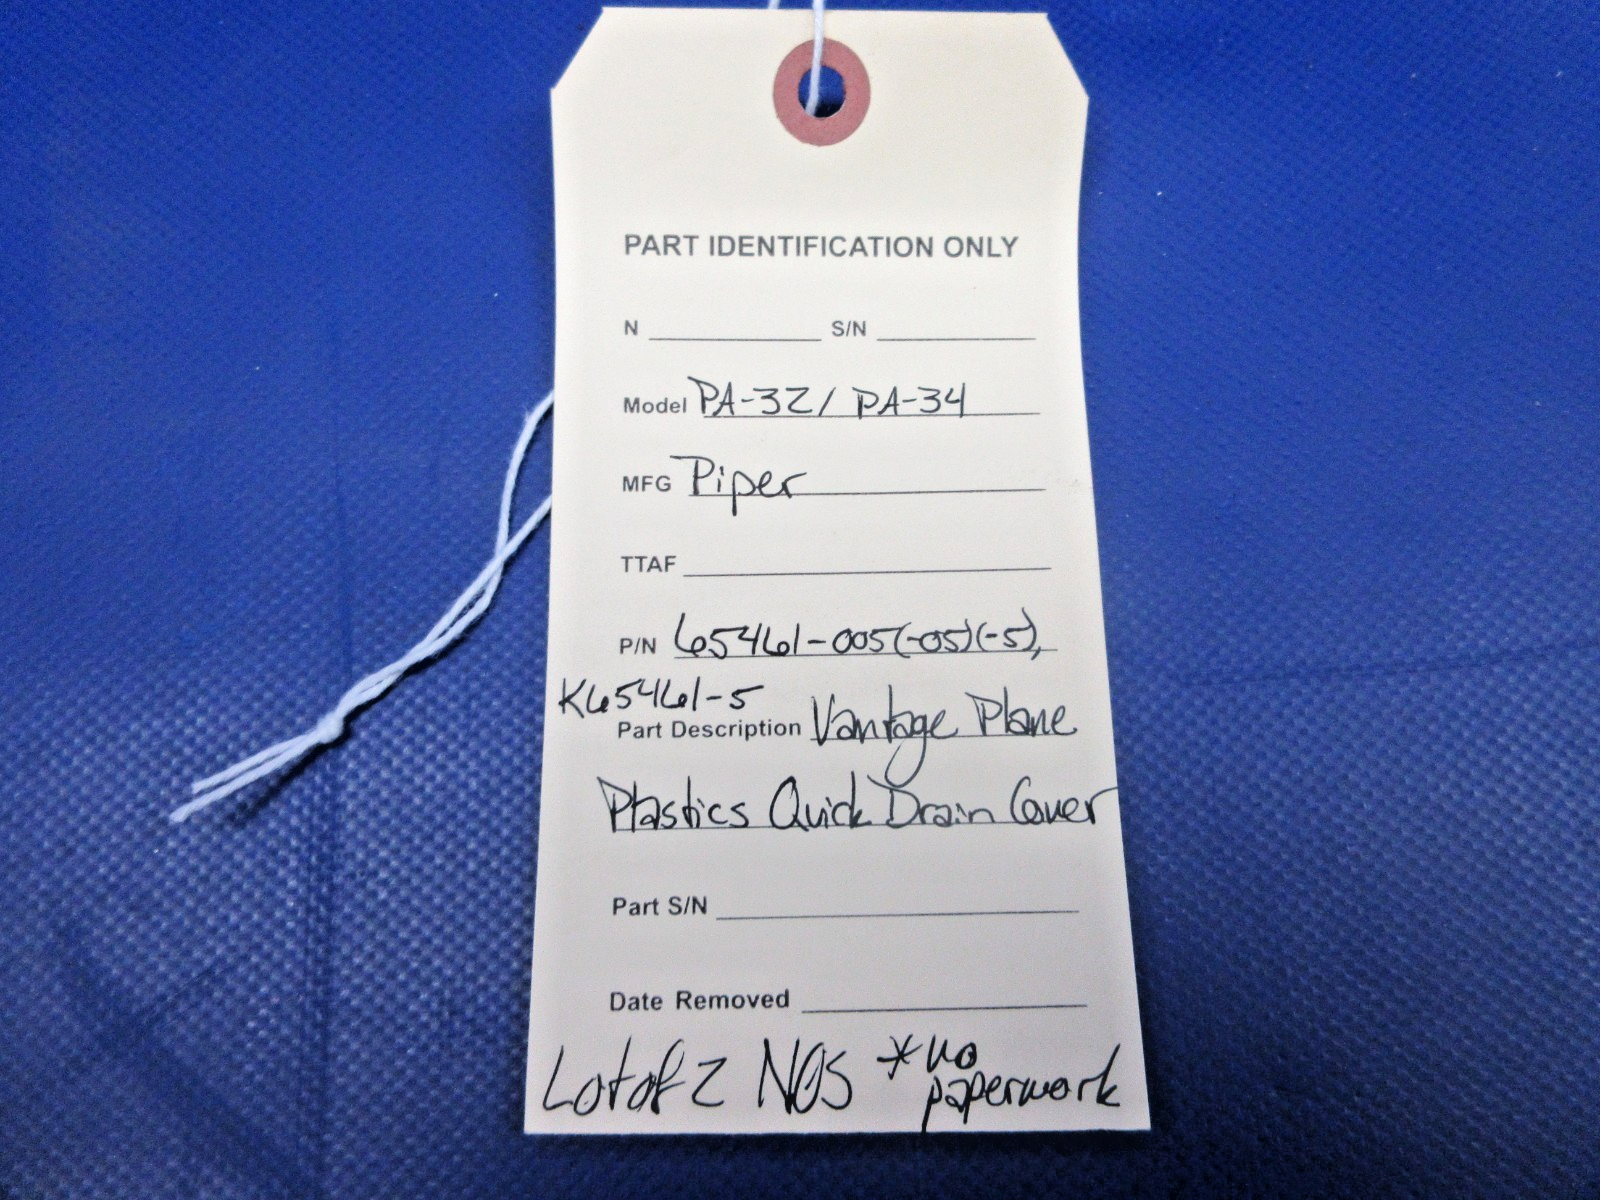 PART IDENTIFICATION ONLY
N S/N
Model PA-32/ PA-34
MFG Piper
TTAF
P/N 65461-005(-05)(-5),
K65461-5
Part Description Vantage Plane
Plastics Quick Drain Cover
Part S/N
Date Removed
Lot of 2 NOS *no
paperwork